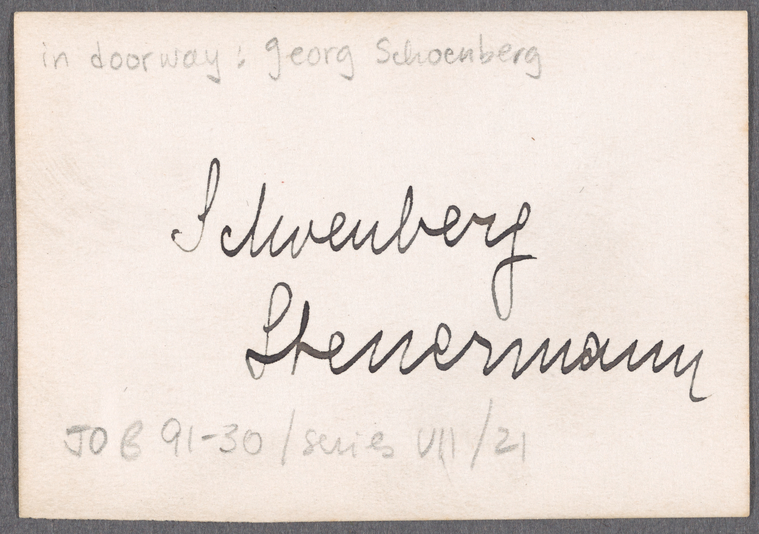 in doorway: Georg Schoenberg
Schoenberg
Steuermann
JOB 91-30/series VII/21